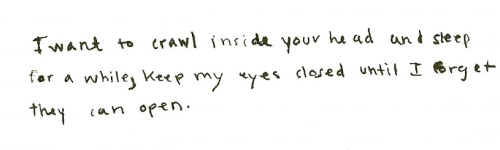 I want to crawl inside your head and sleep
for a while, keep my eyes closed until I forget
they can open.